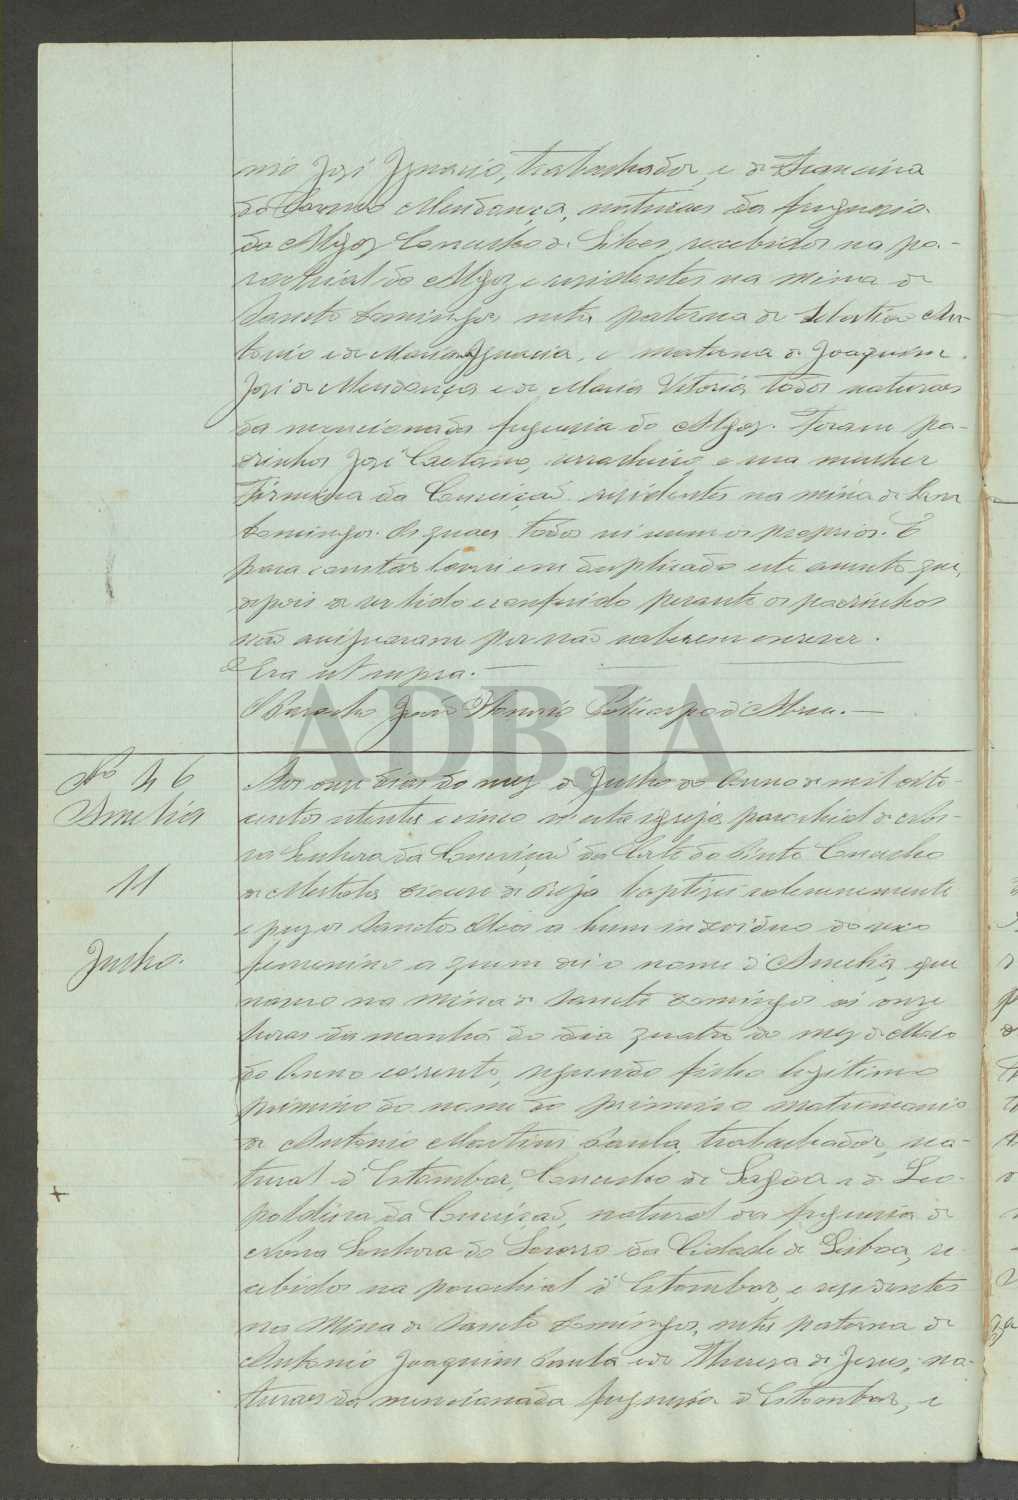 nio José Ignacio, trabalhador, e de Francisca
do Carmo Mendonça, naturaes da freguesia
do Algoz Concelho de Silves, recebidos na pa-
rochial do Algoz e residentes na mina de
Sancto Domingos neta paterna de Sebastião An-
tonio e de Maria Ignacia, e materna de Joaquim
José de Mendonça e de Maria Vitoria todos naturaes
da mencionada freguesia do Algoz. Foram pa-
drinhos José Caetano, e sua mulher
Firmina da Conceição residentes na mina de Sam
Domingos. Os quaes todos sei serem os proprios. E
para constar lavrei em duplicado este assento que,
depois de ser lido e conferido perante os padrinhos
não assignaram por não saberem escrever.
Era ut supra.
O Parocho João Honorio Policarpo d'Abreu.
ADBJA
Nº 46
Amelia
11
Junho.
Aos onze dias do mez de Junho do Anno de mil oito-
centos setenta e cinco n'esta igreja parochial de Nos-
sa Senhora da Conceição da Corte do Pinto Concelho
de Mertola Diocese de Beja baptizei solemnemente
e puz os Sanctos Oleos a hum individuo do sexo
femenino a quem dei o nome d'Amelia, que
nasceo na Mina de Sancto Domingos ás onze
horas da manhã do dia quatro do mez de Maio
do Anno corrente, segundo filho legitimo
primeiro do nome do primeiro matrimonio
de Antonio Martins Paula, trabalhador, na-
tural d'Estombar, Concelho de Lagoa e de Leo-
poldina da Conceição, natural da freguesia de
Nossa Senhora do Socorro da Cidade de Lisboa, re-
cebidos na parochial d'Estombar, e residentes
na Mina de Sancto Domingos, neta paterna de
Antonio Joaquim Paula e de Thereza de Jesus, na-
turaes da mencionada freguesia d'Estombar, e